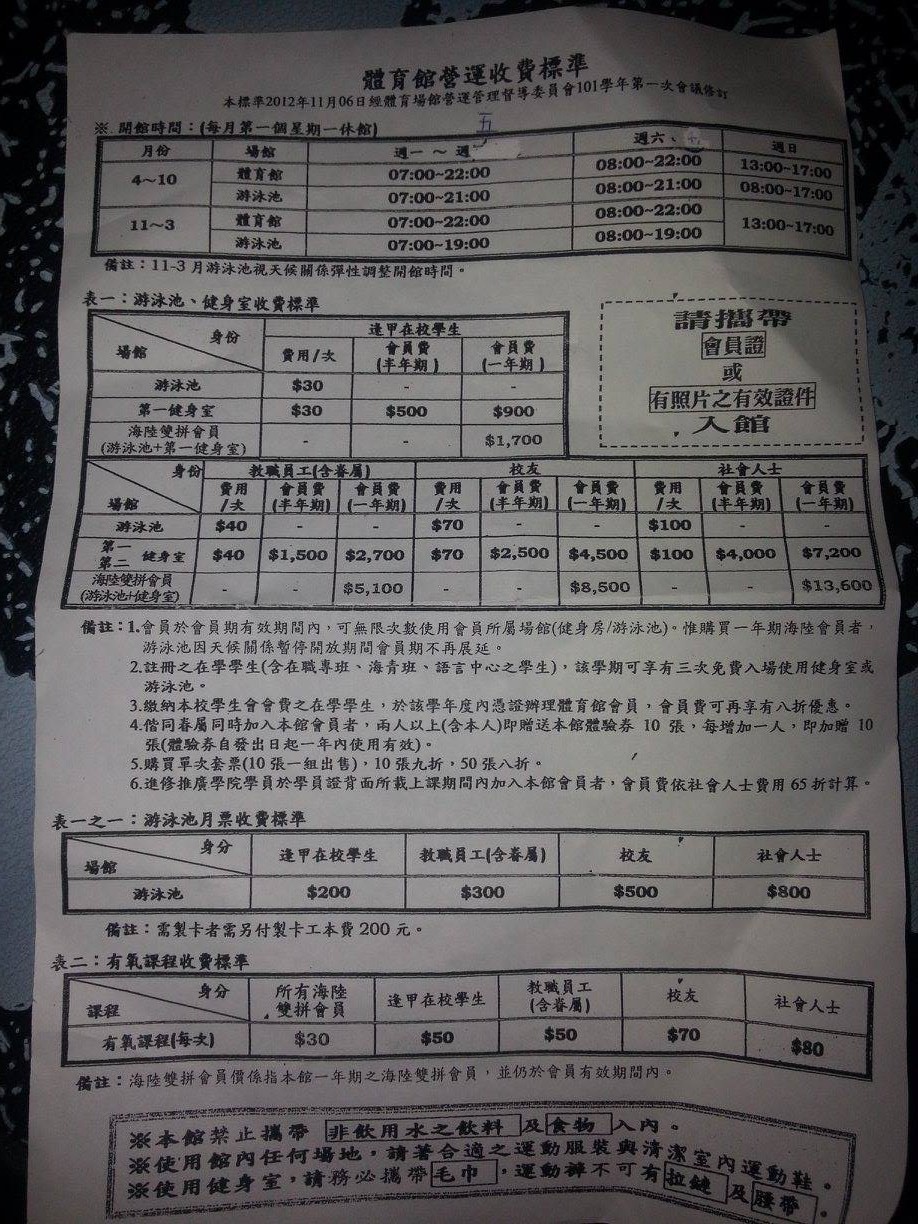 體育館營運收費標準
本標準2012年11月06日經體育場館營運管理督導委員會101學年第一次會議修訂
※ 開館時間：(每月第一個星期一休館)
五
月份 場館 週一 ～ 週 週六、 週日
4～10 體育館 07:00~22:00 08:00~22:00 13:00~17:00
游泳池 07:00~21:00 08:00~21:00 08:00~17:00
11～3 體育館 07:00~22:00 08:00~22:00 13:00~17:00
游泳池 07:00~19:00 08:00~19:00
備註：11-3 月游泳池視天候關係彈性調整開館時間。
表一：游泳池、健身室收費標準
身份 逢甲在校學生
場館 費用/次 會員費(半年期) 會員費(一年期)
游泳池 $30 - -
第一健身室 $30 $500 $900
海陸雙拼會員
(游泳池+第一健身室) - - $1,700
請攜帶
會員證
或
有照片之有效證件
入館
身份 教職員工(含眷屬) 校友 社會人士
場館 費用/次 會員費(半年期) 會員費(一年期) 費用/次 會員費(半年期) 會員費(一年期) 費用/次 會員費(半年期) 會員費(一年期)
游泳池 $40 - - $70 - - $100 - -
第一 第二 健身室 $40 $1,500 $2,700 $70 $2,500 $4,500 $100 $4,000 $7,200
海陸雙拼會員
(游泳池+健身室) - - $5,100 - - $8,500 - - $13,600
備註：1.會員於會員期有效期間內，可無限次數使用會員所屬場館(健身房/游泳池)。惟購買一年期海陸會員者，
游泳池因天候關係暫停開放期間會員期不再展延。
2.註冊之在學學生(含在職專班、海青班、語言中心之學生)，該學期可享有三次免費入場使用健身室或
游泳池。
3.繳納本校學生會會費之在學學生，於該學年度內憑證辦理體育館會員，會員費可再享有八折優惠。
4.偕同眷屬同時加入本館會員者，兩人以上(含本人)即贈送本館體驗券 10 張，每增加一人，即加贈 10
張(體驗券自發出日起一年內使用有效)。
5.購買單次套票(10 張一組出售)，10 張九折，50 張八折。
6.進修推廣學院學員於學員證背面所載上課期間內加入本館會員者，會員費依社會人士費用 65 折計算。
表一之一：游泳池月票收費標準
身分
場館 逢甲在校學生 教職員工(含眷屬) 校友 社會人士
游泳池 $200 $300 $500 $800
備註：需製卡者需另付製卡工本費 200 元。
表二：有氧課程收費標準
身分
課程 所有海陸雙拼會員 逢甲在校學生 教職員工(含眷屬) 校友 社會人士
有氧課程(每次) $30 $50 $50 $70 $80
備註：海陸雙拼會員價係指本館一年期之海陸雙拼會員，並仍於會員有效期間內。
※本館禁止攜帶 非飲用水之飲料 及 食物 入內。
※使用館內任何場地，請著合適之運動服裝與清潔室內運動鞋。
※使用健身室，請務必攜帶 毛巾，運動褲不可有 拉鏈 及 腰帶。